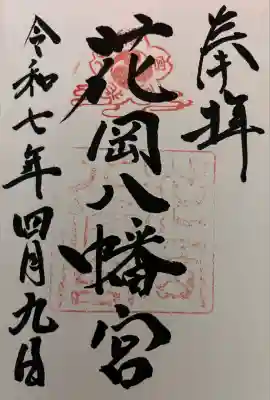 奉拝
花岡八幡宮
令和七年四月九日